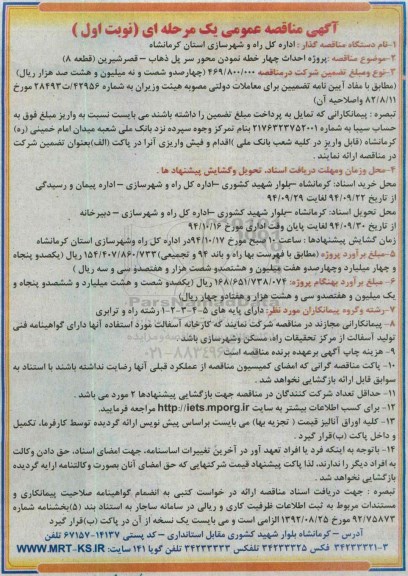 آگهی مناقصه عمومی یک مرحله ای (نوبت اول )
۱-نام دستگاه مناقصه گذار : اداره کل راه و شهرسازی استان کرمانشاه
۲-موضوع مناقصه :پروژه احداث چهار خطه نمودن محور سر پل ذهاب – قصرشیرین (قطعه ۸)
۳-نوع ومبلغ تضمین شرکت درمناقصه :۴۶۹/۸۰۰/۰۰۰ (چهارصدو شصت و نه میلیون و هشت صد هزار ریال)
(مطابق با مفاد آیین نامه تضمینیی برای معاملات دولتی مصوبه هیئت وزیران به شماره ۴۲۹۵۶/ت۲۸۴۹۳ مورخ
۸۲/۸/۱۱ واصلاحیه آن)
تبصره : پیمانکارانی که تمایل به پرداخت مبلغ تضمین را داشته باشند می بایست نسبت به واریز مبلغ فوق به
حساب سیبا به شماره ۲۱۷۶۴۴۳۷۵۲۰۰۱ بنام تمرکز وجوه سپرده نزد بانک ملی شعبه میدان امام خمینی (ره)
کرمانشاه (قابل واریز در کلیه شعب بانک ملی )اقدام و فیش واریزی آنرا در پاکت (الف)بعنوان تضمین شرکت
در مناقصه ارائه نمایند .
۴-محل وزمان ومهلت دریافت اسناد، تحویل وگشایش پیشنهاد ها .
محل خرید اسناد: کرمانشاه –بلوار شهید کشوری –اداره کل راه و شهرسازی – اداره پیمان و رسیدگی
از تاریخ ۹۴/۰۹/۲۲ لغایت ۹۴/۰۹/۲۹
محل تحویل اسناد: کرمانشاه –بلوار شهید کشوری –اداره کل راه و شهرسازی – دبیرخانه
از تاریخ ۹۴/۰۹/۳۰ لغایت پایان وقت اداری مورخ ۹۴/۱۰/۱۶
زمان گشایش پیشنهادها : ساعت ۱۰صبح مورخ ۹۴/۱۰/۱۷در اداره کل راه وشهرسازی استان کرمانشاه
۵-مبلغ برآورد پروژه (مطابق با فهرست بها راه و باند ۹۴ و تجمیعی) ۱۵۴/۴۰۷/۸۶۰/۷۳۳ ریال (یکصدو پنجاه
و چهار میلیارد وچهارصدو هفت میلیون و هشتصدو شصت هزار و هفتصدو سی و سه ریال )
۶-مبلغ برآورد بهنگام پروژه: ۱۶۸/۶۵۱/۷۳۸/۰۷۴ ریال (یکصدو شصت و هشت میلیارد و ششصدو پنجاه و
یک میلیون و هفتصدو سی و هشت هزار و هفتادو چهار ریال)
۷-رشته وگروه پیمانکاران مورد نظر: دارای پایه های ۵-۴-۳-۲-۱ رشته راه و ترابری
۸-پیمانکارانی مجازند در مناقصه شرکت نمایند که کارخانه آسفالت مورد استفاده آنها دارای گواهینامه فنی
تولید آسفالت از مرکز تحقیقات راه، مسکن وشهرسازی باشد
۹- هزینه چاپ آگهی برعهده برنده مناقصه است
۱۰- پاکت مناقصه گرانی که امضای کمیسیون مناقصه از عملکرد قبلی آنها رضایت نداشته باشند با استناد به
سوابق قابل ارائه بازگشایی نخواهد شد .
۱۱- حداقل تعداد شرکت کنندگان در مناقصه جهت بازگشایی پیشنهادها ۲ مورد می باشد .
۱۲- برای کسب اطلاعات بیشتر به سایت http://iets.mporg.ir مراجعه فرمایید.
۱۳- کلیه اوراق آنالیز قیمت ( تجزیه بها) می بایست براساس پیش نویس ارائه گردیده توسط کارفرما، تکمیل
و داخل پاکت (ب)قرار گیرد .
۱۴- باتوجه به اینکه فرد یا افراد تعهد آور در آخرین تغییرات اساسنامه، جهت امضای اسناد، حق دادن وکالت
به افراد دیگر را ندارند، لذا پاکت پیشنهاد قیمت شرکتهایی که حق امضای آنان بصورت وکالتنامه ارایه گردیده
بازگشایی نخواهد شد .
تبصره : جهت دریافت اسناد مناقصه ارائه در خواست کتبی به انضمام گواهینامه صلاحیت پیمانکاری و
مستندات مربوط به ثبت اطلاعات ظرفیت کاری و ریالی در سامانه ساجار به استناد بند (۵)بخشنامه شماره
۹۲/۷۵۸۷۳ مورخ ۱۳۹۲/۰۸/۲۵ الزامی است و می بایست یک نسخه از آن در پاکت (ب)قرار گیرد
آدرس – کرمانشاه بلوار شهید کشوری مقابل استانداری – کد پستی ۱۴۱۳۷-۶۷۱۵۷ تلفن
۳-۳۴۲۳۳۲۲۱ فکس ۳۴۲۳۳۲۲۵ تلفکس ۳۴۲۳۳۳۳۳ تلفن گویا ۱۴۱ سایت: WWW.MRT-KS.IR